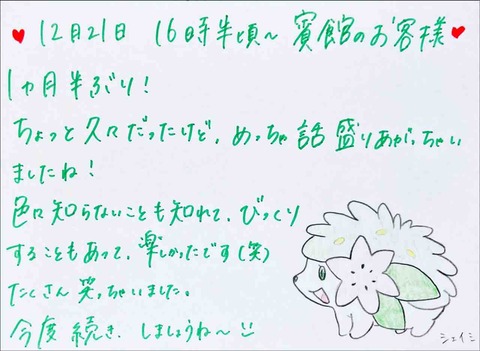 ♥ 12月21日 16時半頃〜 賓館のお客様 ♥
1ヵ月半ぶり！
ちょっと久々だったけど、めっちゃ話盛りあがっちゃい
ましたね！
色々知らないことも知れて、びっくり
することもあって、楽しかったです(笑)
たくさん笑っちゃいました。
今度続き、しましょうね〜
シェイミ